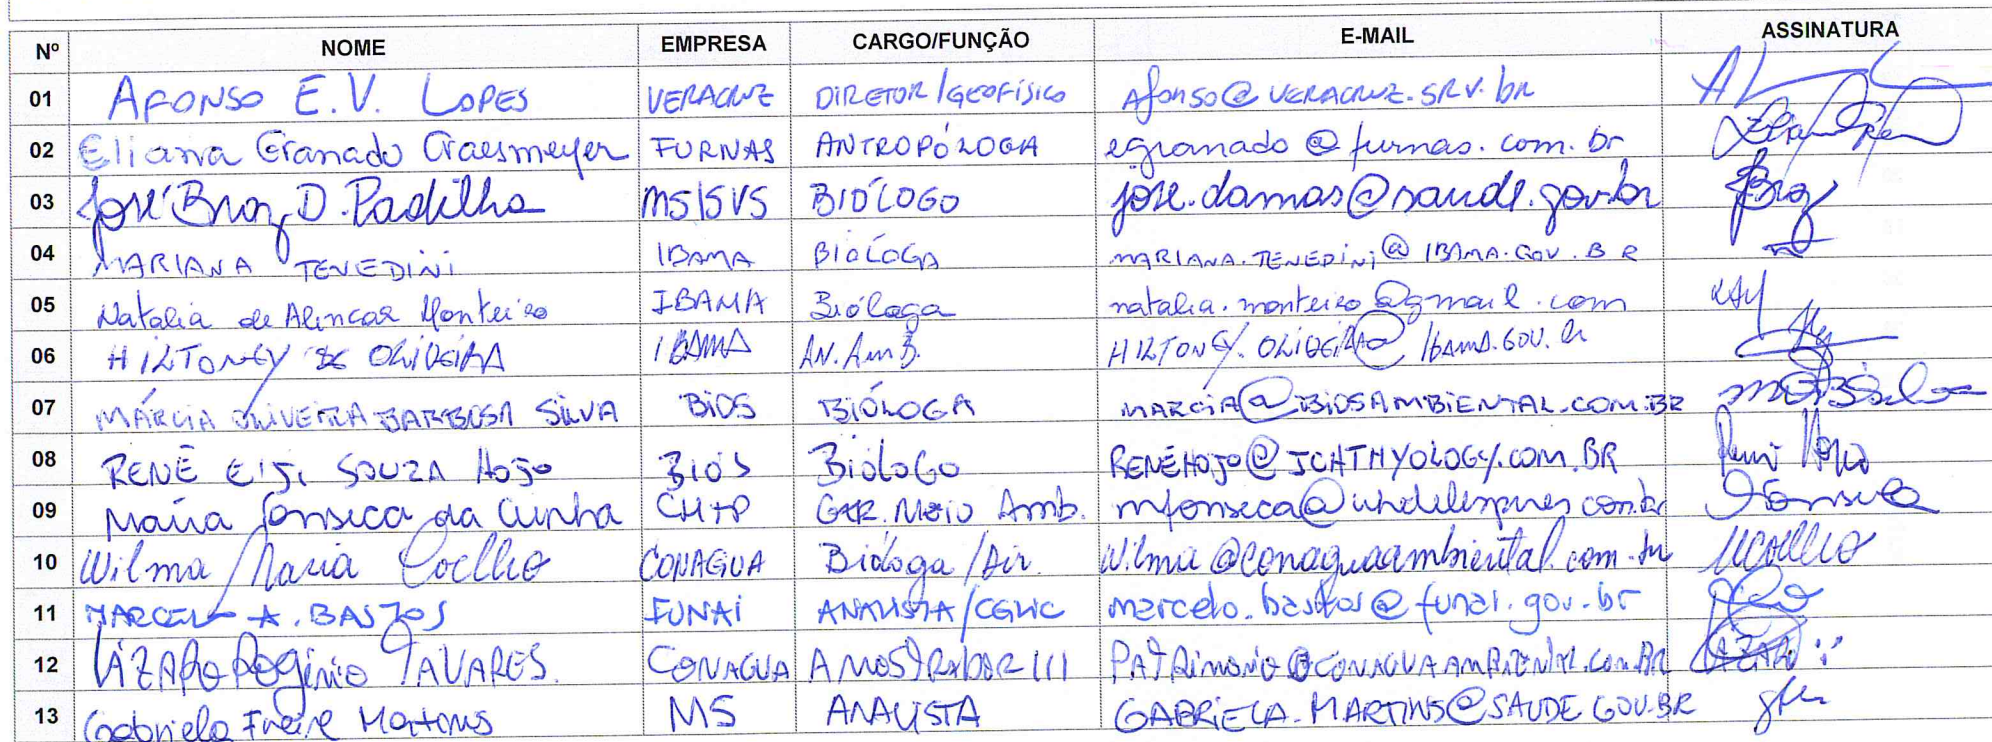 Nº NOME EMPRESA CARGO/FUNÇÃO E-MAIL ASSINATURA
01 AFONSO E.V. LOPES VERACRUZ DIRETOR/GEOFÍSICO Afonso@VERACRUZ.SRV.br
02 Eliana Granado Graesmeyer FURNAS ANTROPÓLOGA egranado@furnas.com.br
03 José Braz D. Padilha MS/SVS BIÓLOGO jose.damas@saude.gov.br Braz
04 MARIANA TENEDINI IBAMA BIÓLOGA MARIANA.TENEDINI@IBAMA.GOV.BR
05 Natalia de Alencar Monteiro IBAMA Bióloga natalia.monteiro@gmail.com
06 HILTONEY DE OLIVEIRA IBAMA AN. Amb. HILTONEY.OLIVEIRA@IbAMA.GOV.br
07 MÁRCIA OLIVEIRA BARBOSA SILVA BIOS BIÓLOGA MARCIA@BIOSAMBIENTAL.COM.BR
08 RENÊ EIJI SOUZA HOJO BIOS BIÓLOGO RENEHOJO@ICHTHYOLOGY.COM.BR
09 Maria Fonseca da Cunha CHTP GER. Meio Amb. Fonseca
10 Wilma Maria Coelho CONÁGUA Bióloga/Dir. Wilma@conaguaambiental.com.br MCoelho
11 MARCELO A. BASTOS FUNAI ANALISTA/CGLIC marcelo.bastos@funai.gov.br
12 LÁZARO ROGÉRIO TAVARES. CONAGUA AMOSTRADOR III PATRIMONIO@CONAGUAAMBIENTAL.COM.BR LAZARO
13 Gabriela Freire Martins MS ANALISTA GABRIELA.MARTINS@SAUDE.GOV.BR